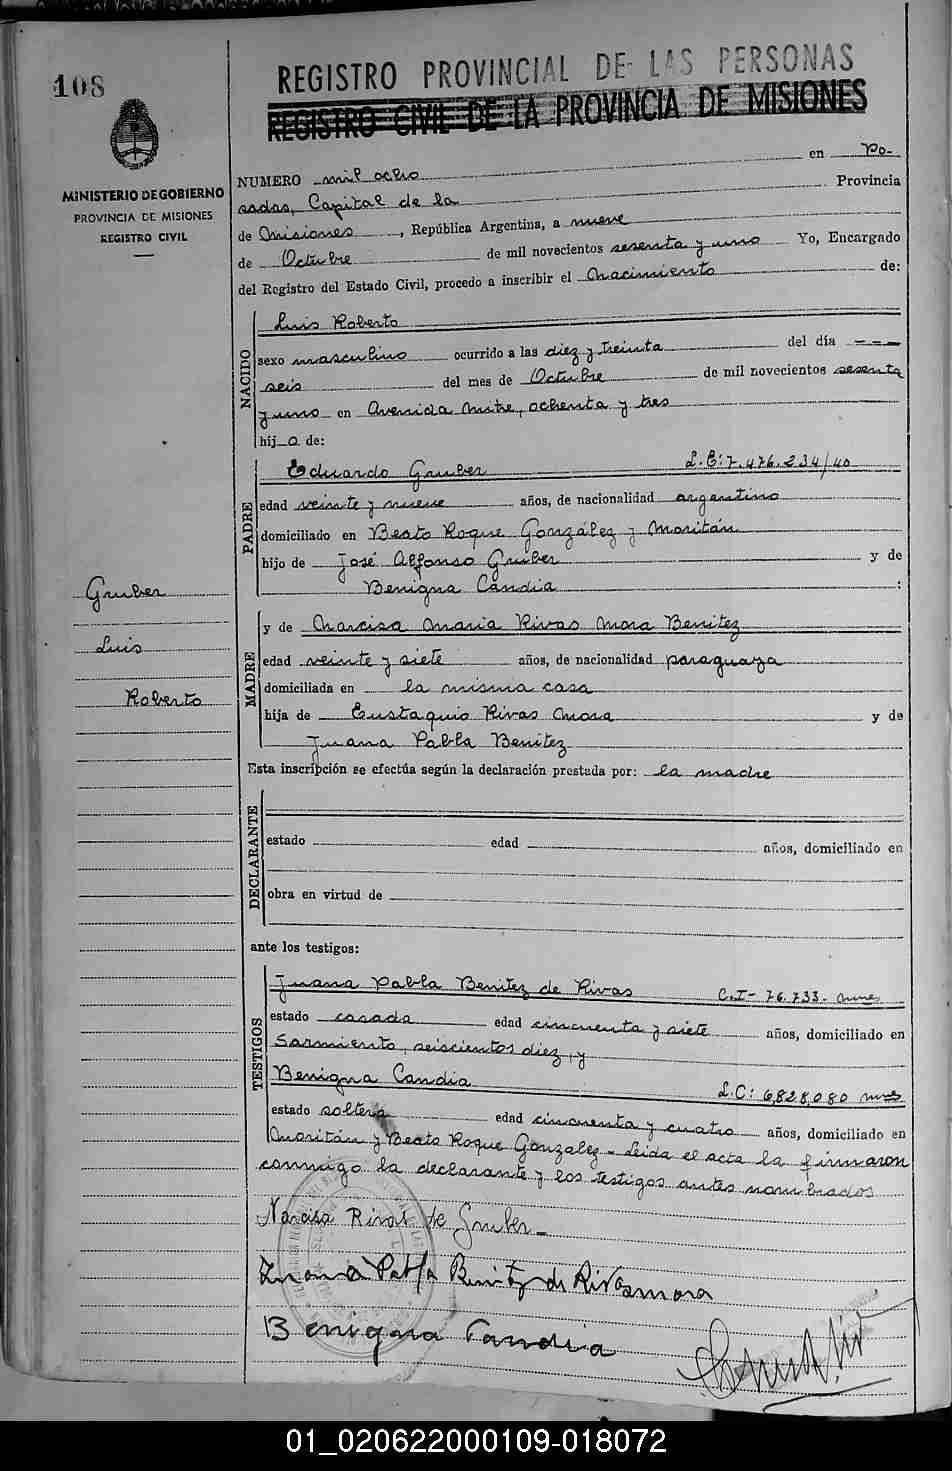 108
REGISTRO PROVINCIAL DE LAS PERSONAS
REGISTRO CIVIL DE LA PROVINCIA DE MISIONES
MINISTERIO DE GOBIERNO
PROVINCIA DE MISIONES
REGISTRO CIVIL
NUMERO mil ocho en Po-
sadas, Capital de la Provincia
de Misiones, República Argentina, a nueve
de Octubre de mil novecientos sesenta y uno Yo, Encargado
del Registro del Estado Civil, procedo a inscribir el Nacimiento de:
NACIDO
Luis Roberto
sexo masculino ocurrido a las diez y treinta del día ---
seis del mes de Octubre de mil novecientos sesenta
y uno en Avenida Mitre, ochenta y tres
hijo de:
PADRE
Eduardo Gruber L.E: 7.476.234/40
edad veinte y nueve años, de nacionalidad argentino
domiciliado en Beato Roque González y Moritán
hijo de José Alfonso Gruber y de
Benigna Candia :
Gruber
Luis
Roberto
MADRE
y de Narcisa Maria Rivas Mora Benitez
edad veinte y siete años, de nacionalidad paraguaya
domiciliada en la misma casa
hija de Eustaquio Rivas Mora y de
Juana Pabla Benitez
Esta inscripción se efectúa según la declaración prestada por: la madre
DECLARANTE
estado edad años, domiciliado en
obra en virtud de
ante los testigos:
TESTIGOS
Juana Pabla Benitez de Rivas C.I- 76.733- mnes
estado casada edad cincuenta y siete años, domiciliado en
Sarmiento, seiscientos diez, y
Benigna Candia L.C: 6,828,080 mnes
estado soltera edad cincuenta y cuatro años, domiciliado en
Moritán y Beato Roque Gonzalez - Leida el acta la firmaron
conmigo la declarante y los testigos antes nombrados
Narcisa Rivas de Gruber-
Juana Pabla Benitez de Rivasmora
Benigna Candia
01_020622000109-018072